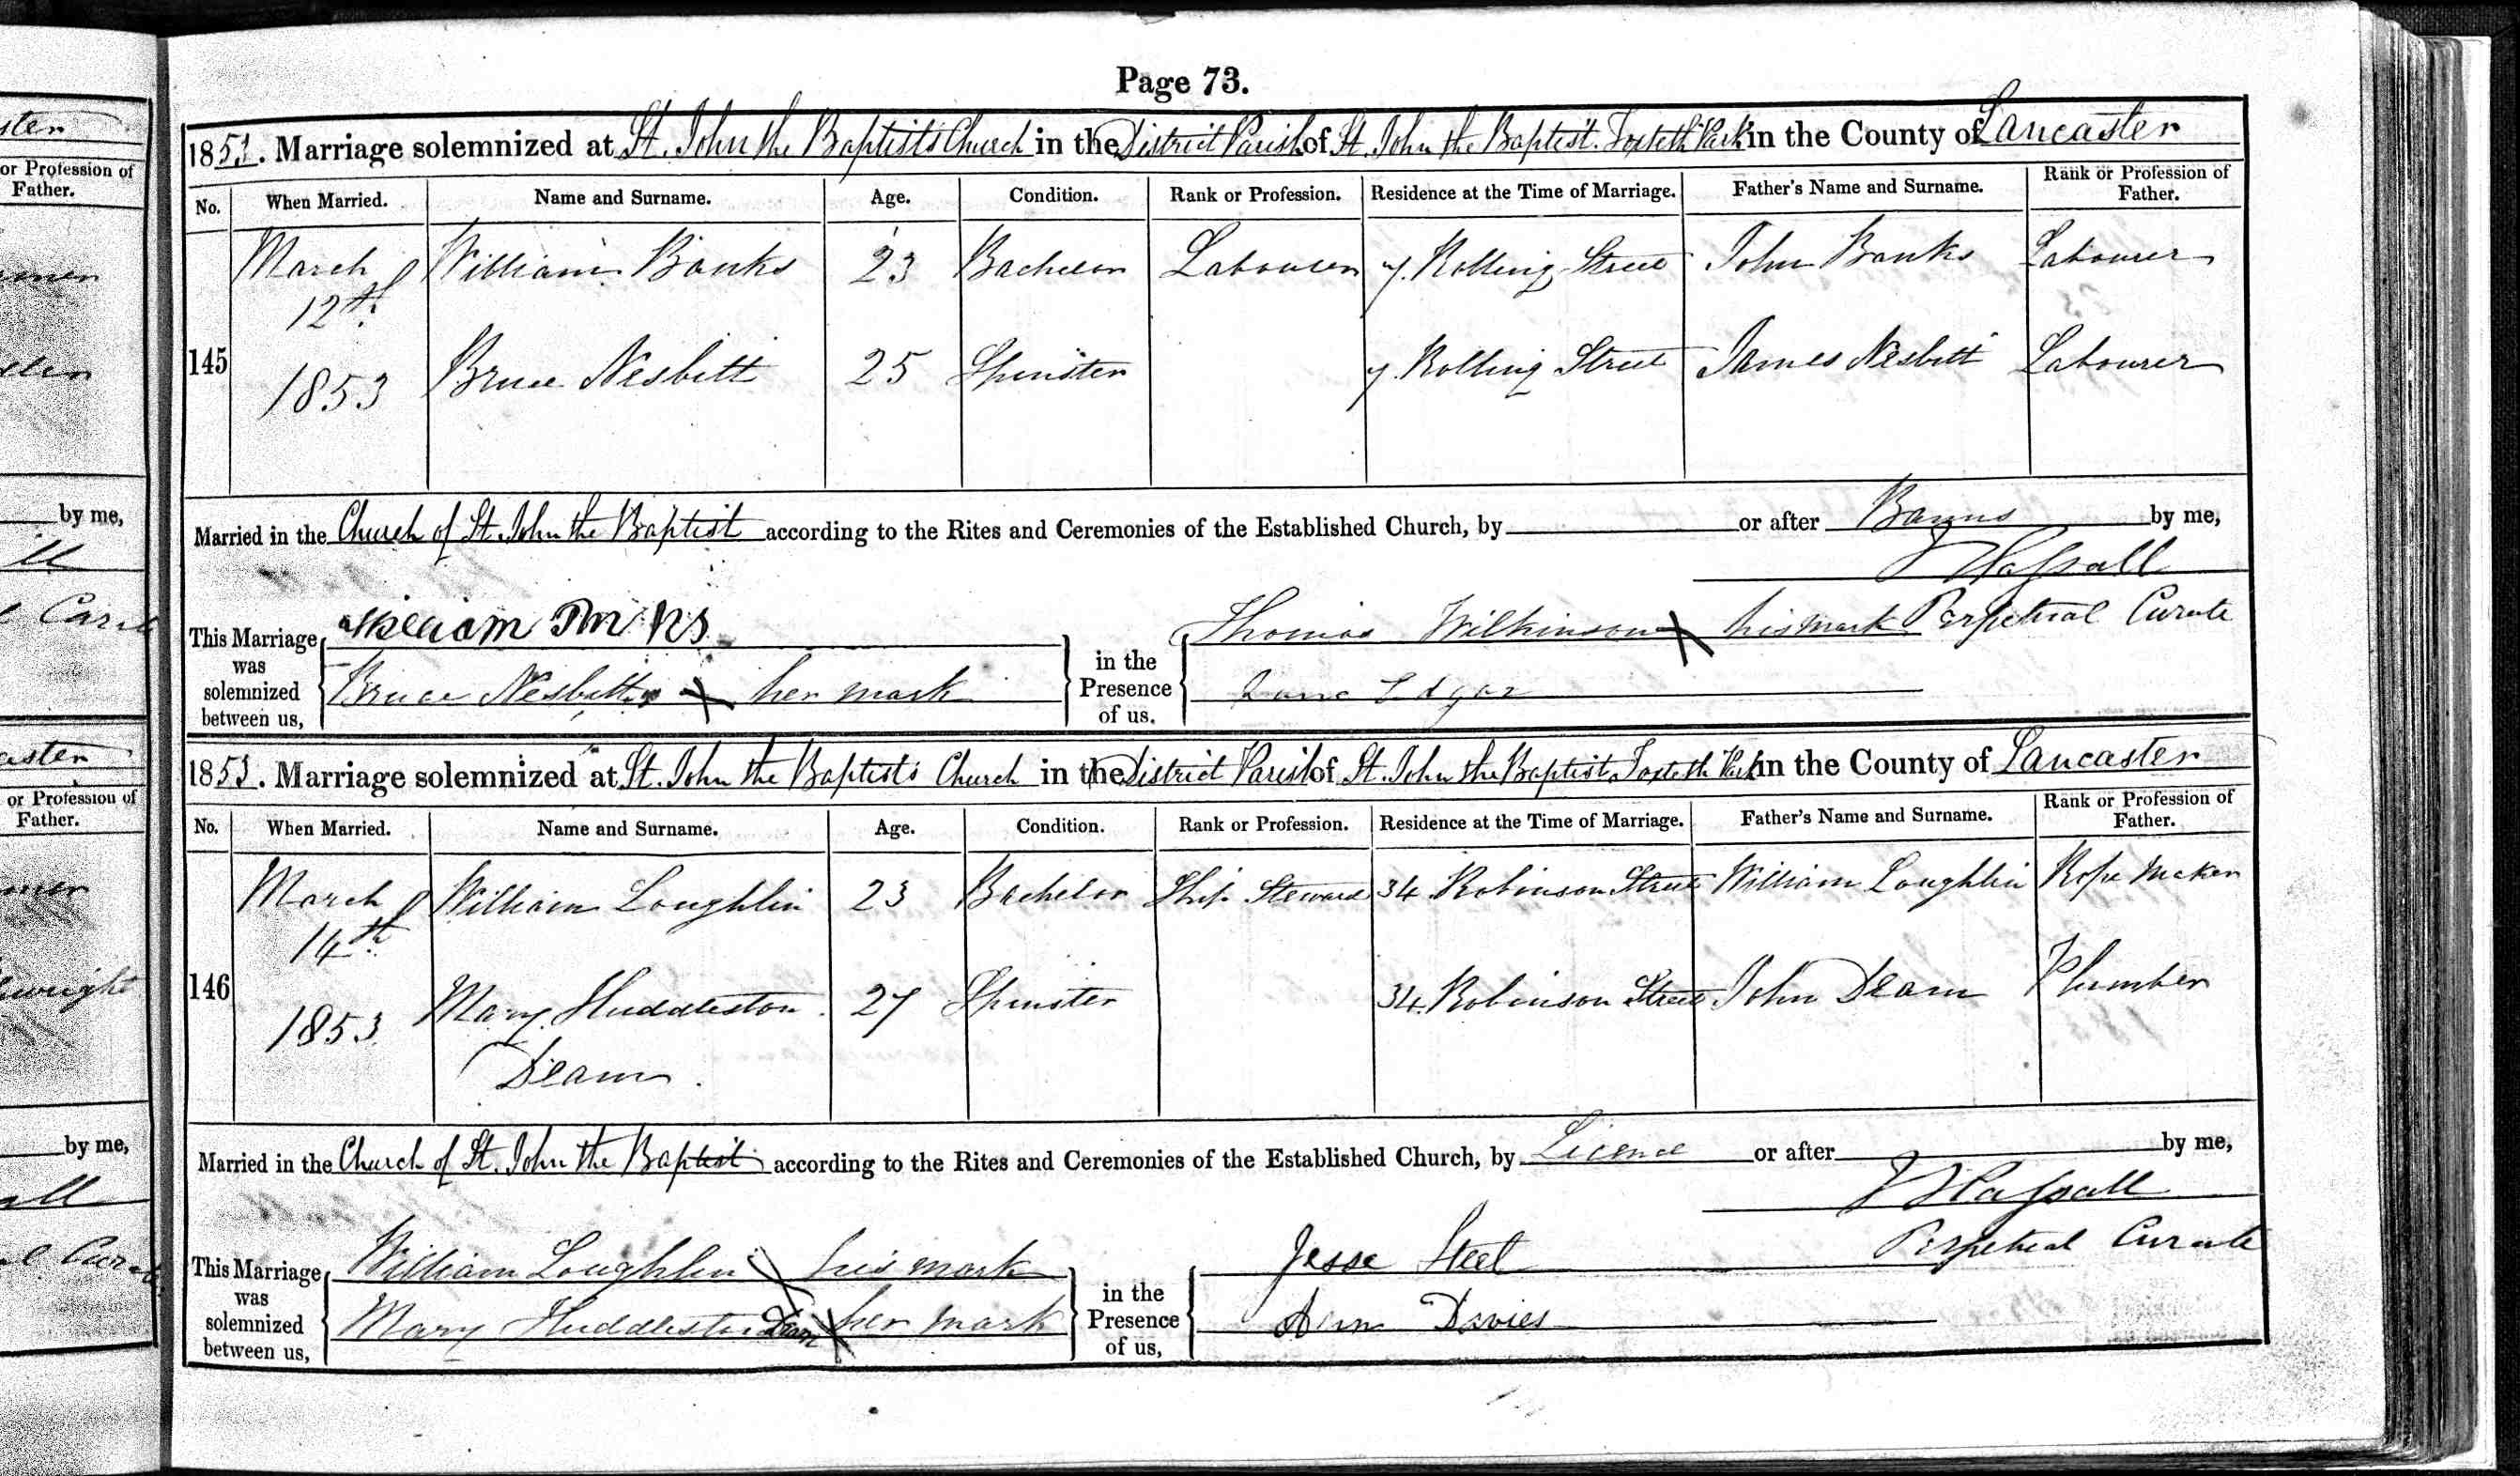 Page 73.
1853. Marriage solemnized at St. John the Baptist's Church in the District Parish of St. John the Baptist. Toxteth Park in the County of Lancaster
No. When Married. Name and Surname. Age. Condition. Rank or Profession. Residence at the Time of Marriage. Father's Name and Surname. Rank or Profession of Father.
March William Banks 23 Bachelor Labourer 7. Rolling Street John Banks Labourer
12th
145 1853 Bruce Nesbitt 25 Spinster 7. Rolling Street James Nesbitt Labourer
Married in the Church of St. John the Baptist according to the Rites and Ceremonies of the Established Church, by or after Banns by me,
Hassall
Perpetual Curate
This Marriage was solemnized between us, William Banks
Bruce Nesbitt X her mark
in the Presence of us. Thomas Wilkinson X his mark
Jane Edgar
1853. Marriage solemnized at St. John the Baptist's Church in the District Parish of St. John the Baptist Toxteth Park in the County of Lancaster
No. When Married. Name and Surname. Age. Condition. Rank or Profession. Residence at the Time of Marriage. Father's Name and Surname. Rank or Profession of Father.
March William Loughlin 23 Bachelor Ship Steward 34 Robinson Street William Loughlin Rope Maker
14th
146 1853 Mary Huddleston 27 Spinster 34. Robinson Street John Deam Plumber
Deam.
Married in the Church of St. John the Baptist according to the Rites and Ceremonies of the Established Church, by Licence or after by me,
Hassall
Perpetual Curate
This Marriage was solemnized between us, William Loughlin X his mark
Mary Huddleston Deam X her mark
in the Presence of us, Jesse Steel
Ann Davies